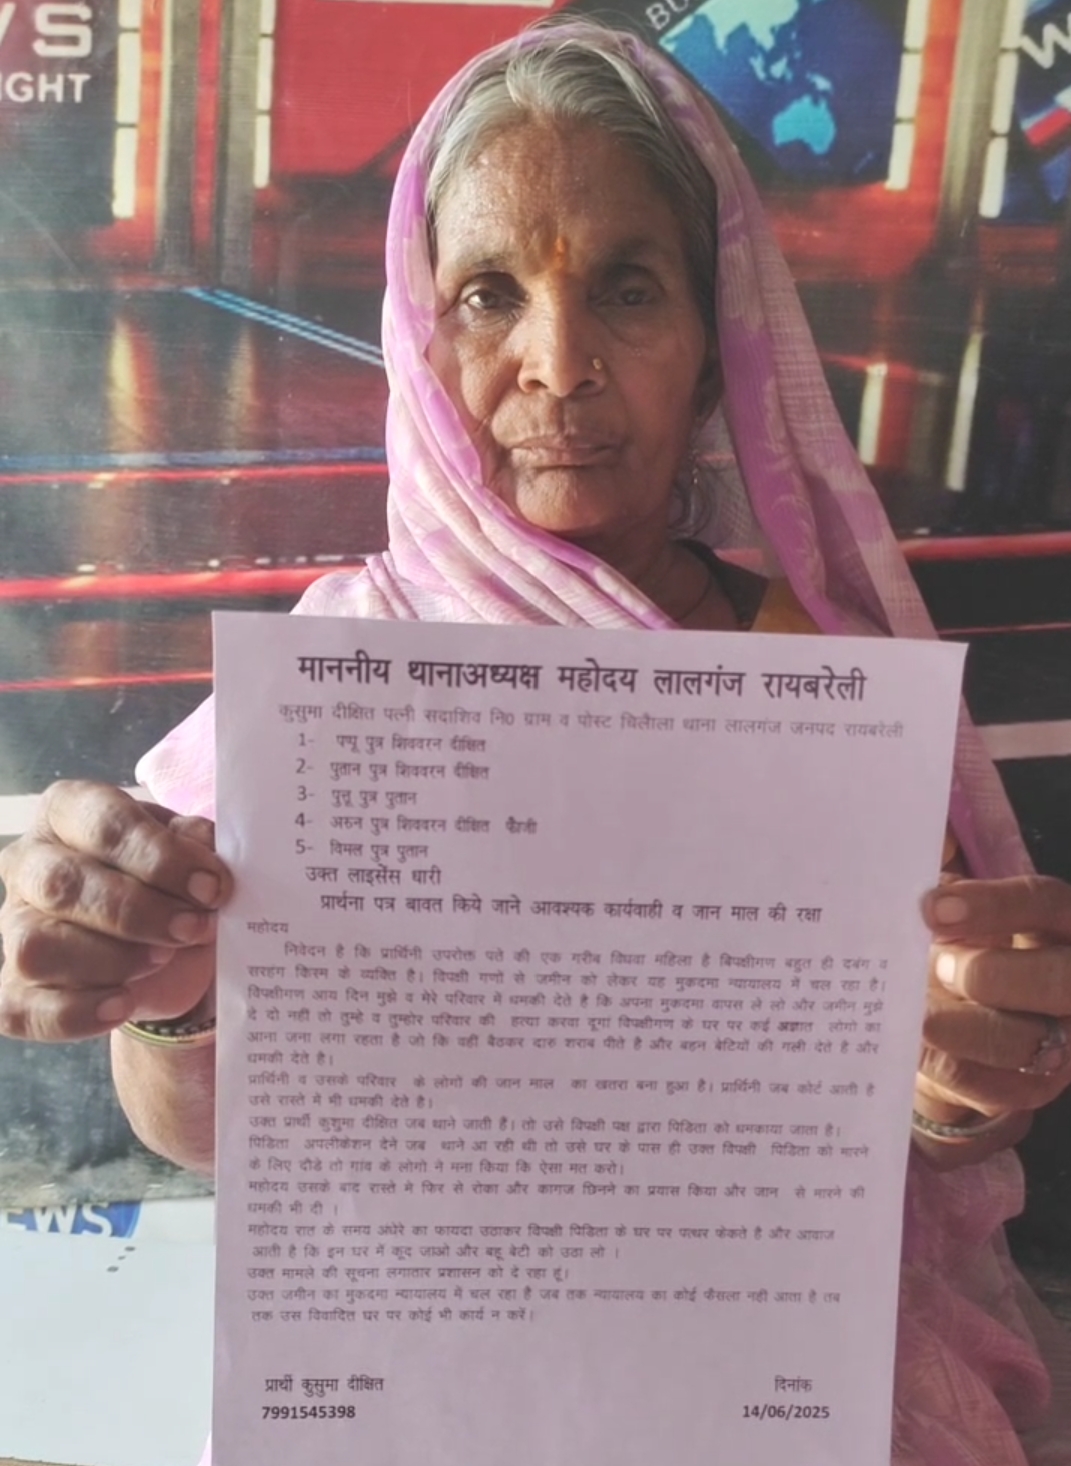 VS
IGHT
BU
W
माननीय थानाअध्यक्ष महोदय लालगंज रायबरेली
कुसुमा दीक्षित पत्नी सदाशिव नि0 ग्राम व पोस्ट चिलौला थाना लालगंज जनपद रायबरेली
1- पप्पू पुत्र शिववरन दीक्षित
2- पुतान पुत्र शिववरन दीक्षित
3- पुत्तू पुत्र पुतान
4- अरुन पुत्र शिववरन दीक्षित फौजी
5- विमल पुत्र पुतान
उक्त लाइसेंस धारी
प्रार्थना पत्र बावत किये जाने आवश्यक कार्यवाही व जान माल की रक्षा
महोदय
निवेदन है कि प्रार्थिनी उपरोक्त पते की एक गरीब विधवा महिला है बिपक्षीगण बहुत ही दबंग व
सरहंग किस्म के व्यक्ति है। विपक्षी गणों से जमीन को लेकर यह मुकदमा न्यायालय में चल रहा है।
विपक्षीगण आय दिन मुझे व मेरे परिवार में धमकी देते है कि अपना मुकदमा वापस ले लो और जमीन मुझे
दे दो नहीं तो तुम्हे व तुम्होर परिवार की हत्या करवा दूगां विपक्षीगण के घर पर कई अज्ञात लोगो का
आना जना लगा रहता है जो कि वहीं बैठकर दारु शराब पीते है और बहन बेटियों की गली देते है और
धमकी देते है।
प्रार्थिनी व उसके परिवार के लोगों की जान माल का खतरा बना हुआ है। प्रार्थिनी जब कोर्ट आती है
उसे रास्ते में भी धमकी देते है।
उक्त प्रार्थी कुशुमा दीक्षित जब थाने जाती हैं। तो उसे विपक्षी पक्ष द्वारा पिडिता को धमकाया जाता है।
पिडिता अपलीकेशन देने जब थाने आ रही थी तो उसे घर के पास ही उक्त विपक्षी पिडिता को मारने
के लिए दौडे तो गांव के लोगो ने मना किया कि ऐसा मत करो।
महोदय उसके बाद रास्ते मे फिर से रोका और कागज छिनने का प्रयास किया और जान से मारने की
धमकी भी दी ।
महोदय रात के समय अधेरे का फायदा उठाकर विपक्षी पिडिता के घर पर पत्थर फेकते है और आवाज
आती है कि इन घर में कूद जाओ और बहू बेटी को उठा लो ।
उक्त मामले की सूचना लगातार प्रशासन को दे रहा हूं।
उक्त जमीन का मुकदमा न्यायालय में चल रहा है जब तक न्यायालय का कोई फैसला नही आता है तब
तक उस विवादित घर पर कोई भी कार्य न करें।
प्रार्थी कुसुमा दीक्षित
7991545398
दिनांक
14/06/2025
EWS